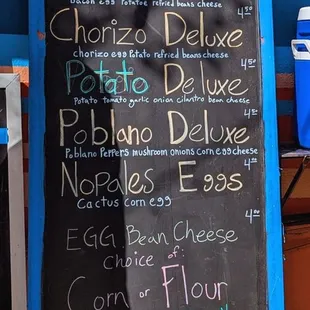 Bacon egg Potatoe refried beans cheese
4.50
Chorizo Deluxe
chorizo egg Potato refried beans cheese
4.50
Potato Deluxe
Potato tomato garlic onion cilantro bean cheese
4.50
Poblano Deluxe
Poblano Peppers mushroom onions corn egg cheese
4.50
Nopales Eggs
Cactus corn egg
4.00
EGG Bean Cheese
choice of:
Corn or Flour